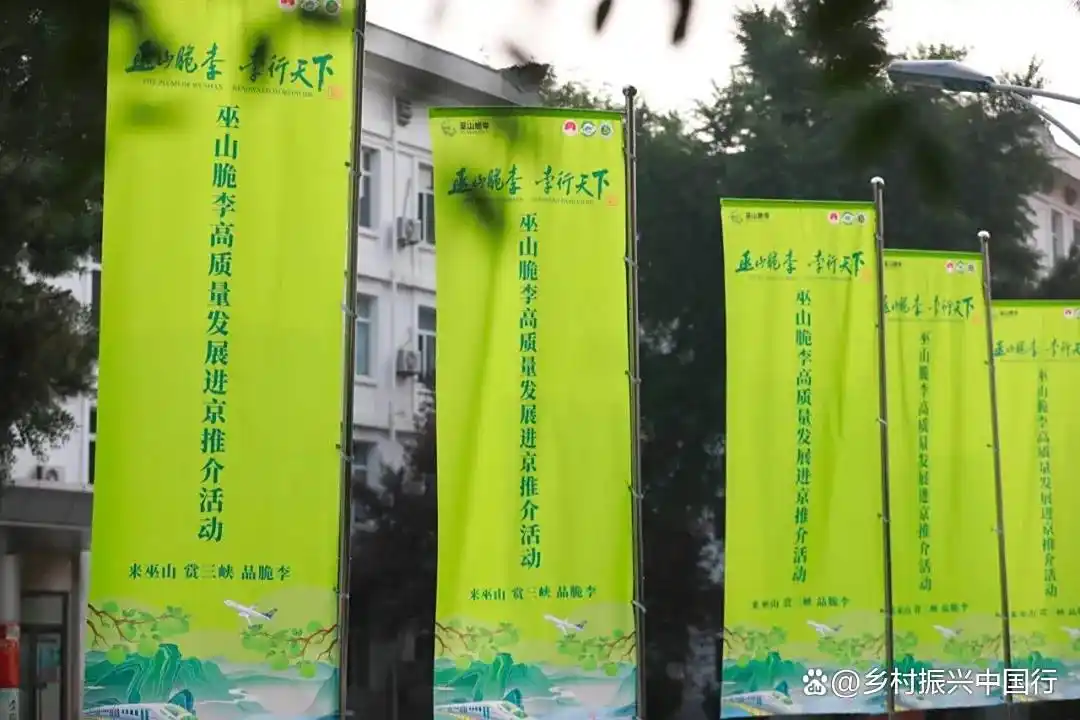 巫山脆李 李行天下
巫山脆李高质量发展进京推介活动
来巫山 赏三峡 品脆李
巫山脆李
巫山脆李 李行天下
巫山脆李高质量发展进京推介活动
来巫山 赏三峡 品脆李
巫山脆李
巫山脆李 李行天下
巫山脆李高质量发展进京推介活动
来巫山 赏三峡 品脆李
巫山脆李
山脆李 李行天下
巫山脆李高质量发展进京推介活动
巫山 赏三峡 品脆李
巫山脆李
巫山脆李 李行天下
巫山脆李高质量发展进京推介活动
来巫山 赏三峡 品脆李
@乡村振兴中国行